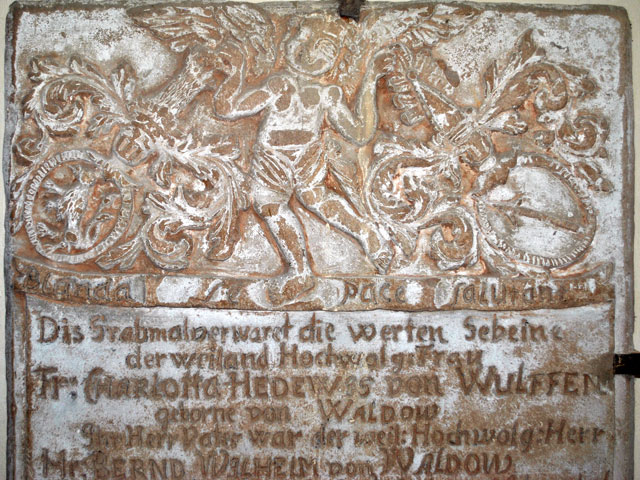 pace
Dis Grabmal verwaret die werten Gebeine
der weiland Hochwolg: Frau
Fr: CHARLOTTA HEDEWIGS von WULFFEN
geborne von WALDOW
Ihr Herr Vater war der weil: Hochwolg: Herr
Hr: BERND WILHELM von WALDOW